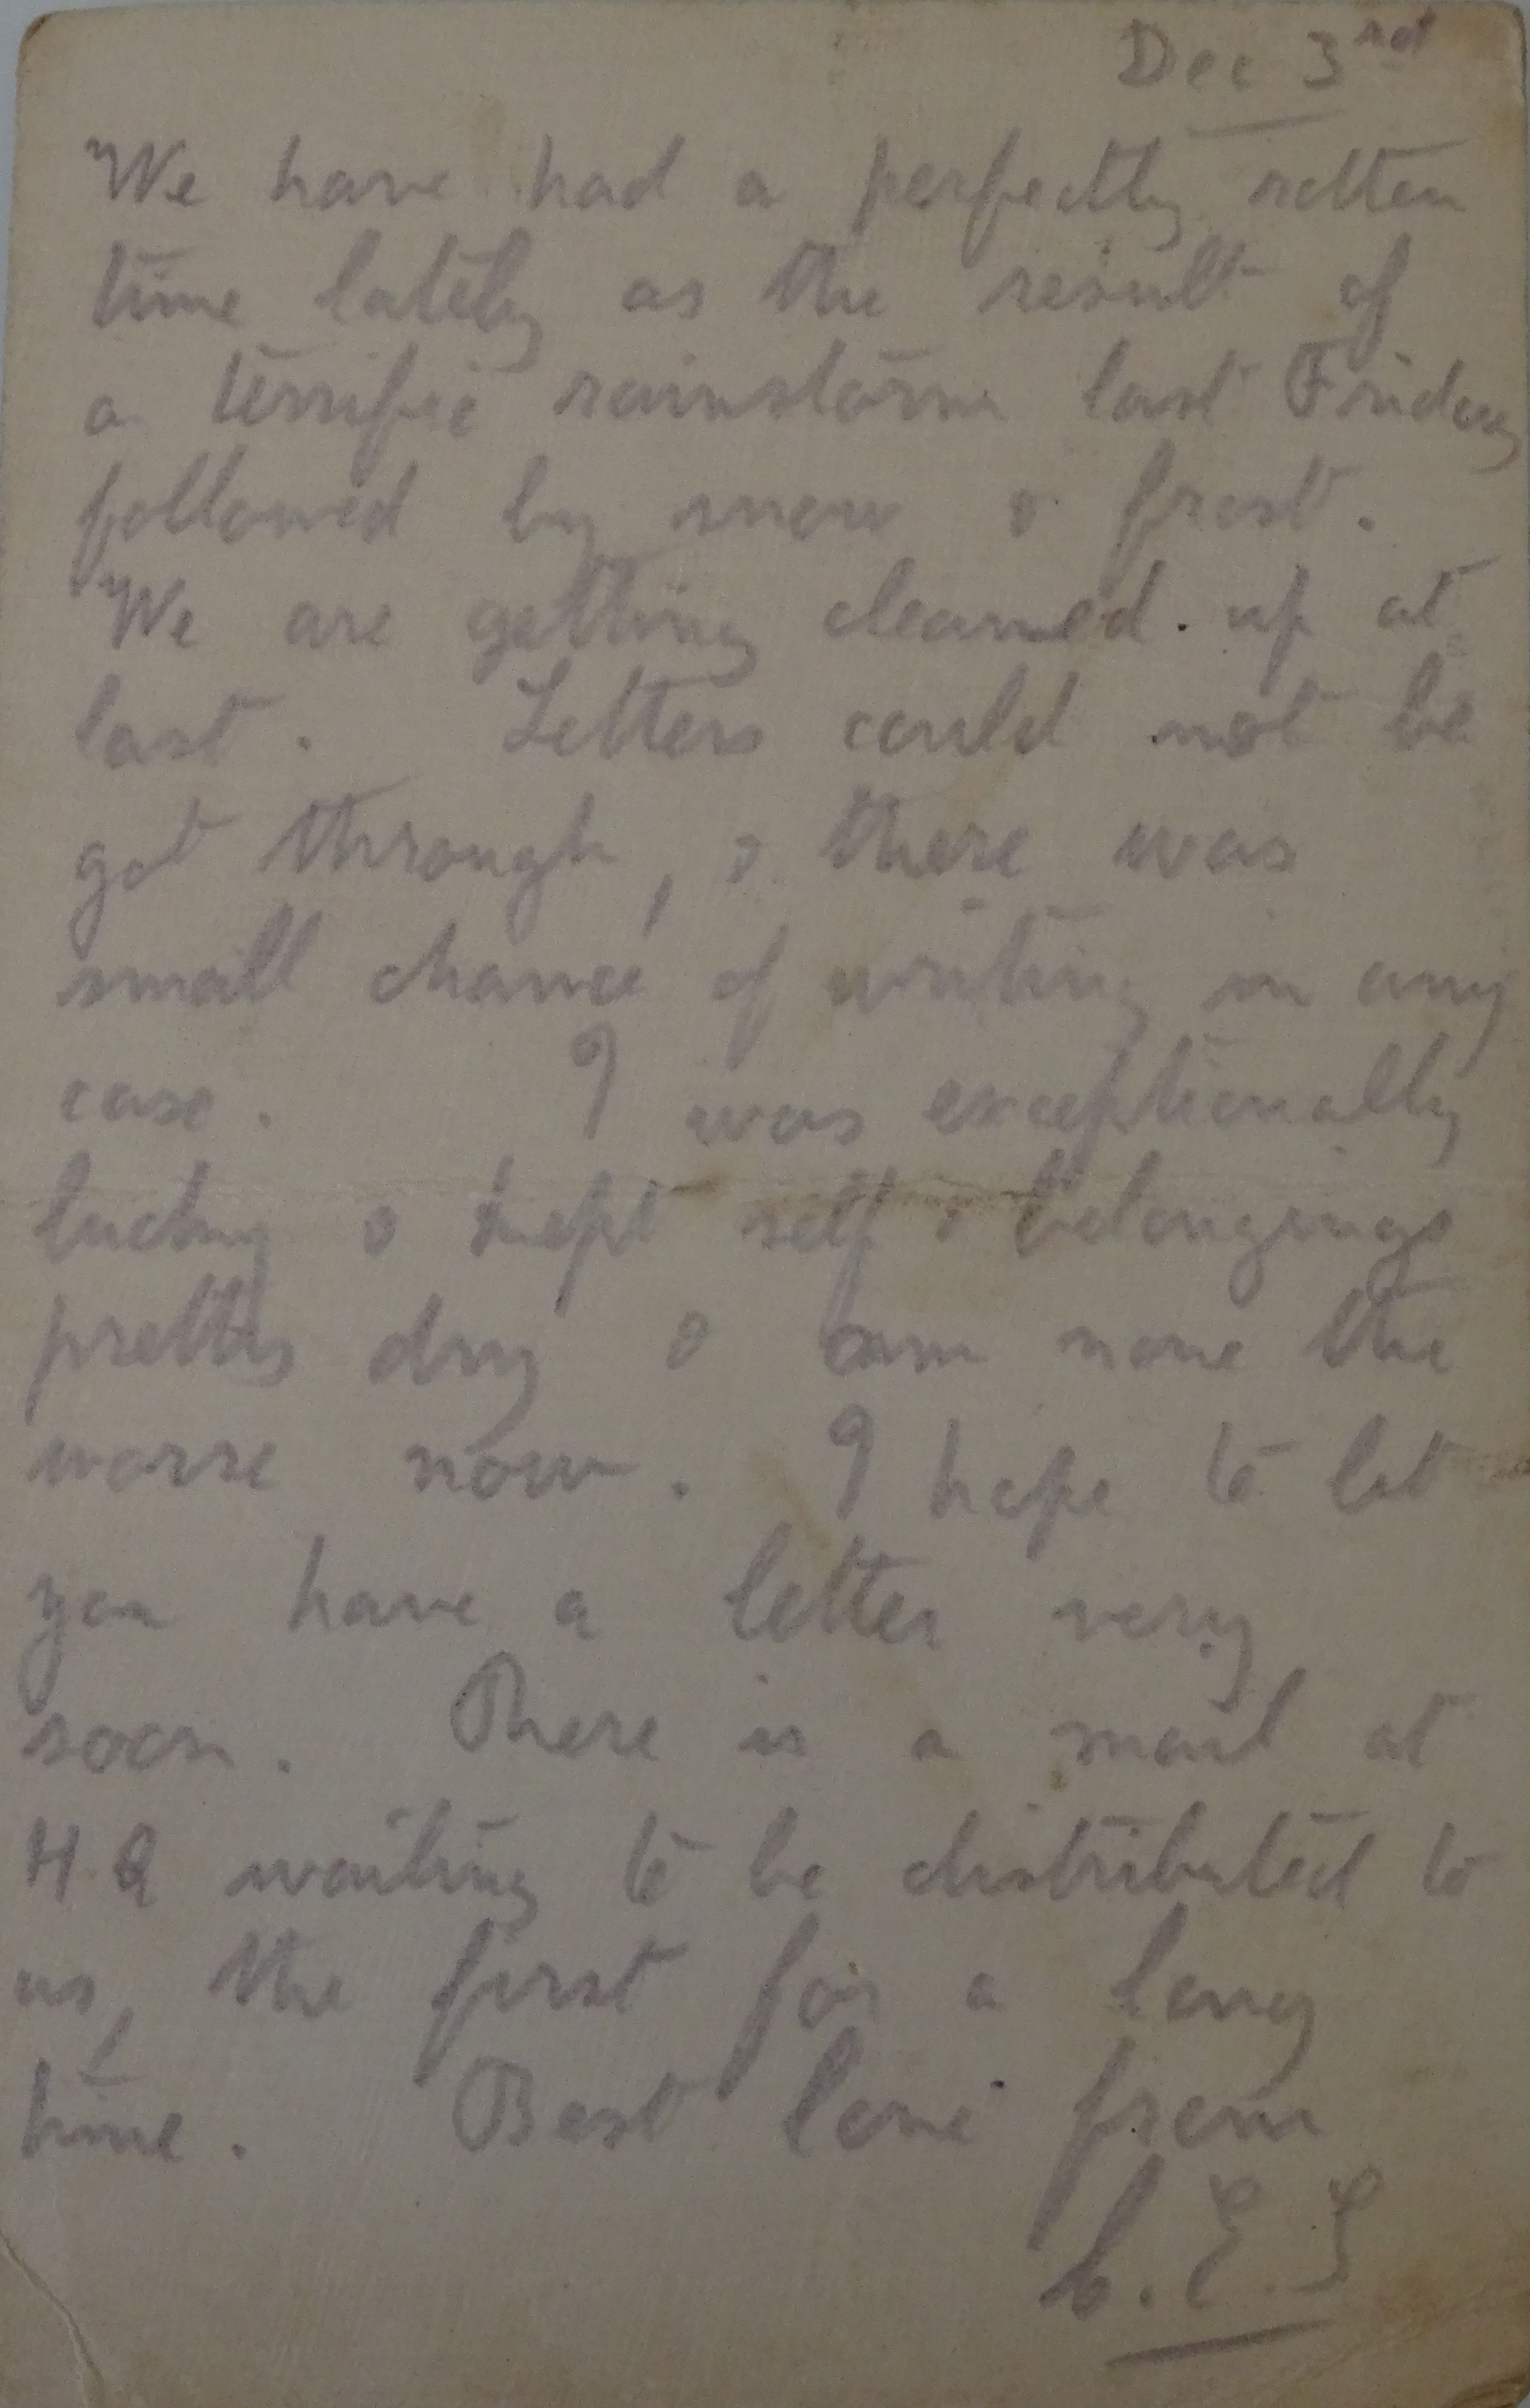 Dec 3rd
We have had a perfectly rotten
time lately as the result of
a terrific rainstorm last Friday
followed by snow & frost.
We are getting cleaned up at
last. Letters could not be
got through, & there was
small chance of writing in any
case. I was exceptionally
lucky & kept self & belongings
pretty dry & am none the
worse now. I hope to let
you have a letter very
soon. There is a mail at
H.Q waiting to be distributed to
us, the first for a long
time. Best love from